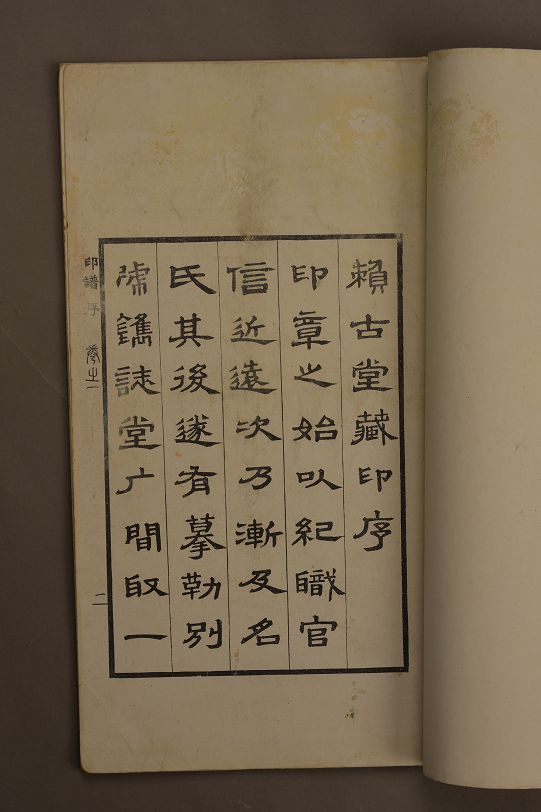 賴古堂藏印序
印章之始以紀職官
信近遠次乃漸及名
氏其後遂有摹勒別
號鐫誌堂广間取一
印譜序
卷之一
二